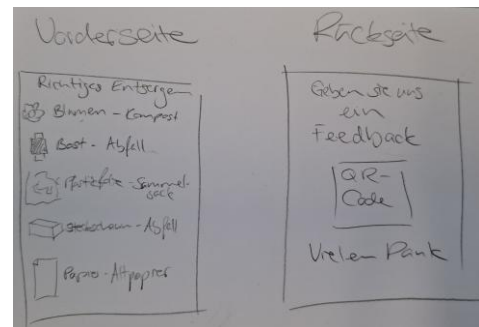 Vorderseite
Richtiges Entsorgen
Blumen - Kompost
Bast - Abfell
Plastikfolie - Sammel-
sack
Steckschaum - Abfell
Papier - Altpapier
Rückseite
Geben sie uns
ein
Feedback
QR-
Code
Vielen Dank